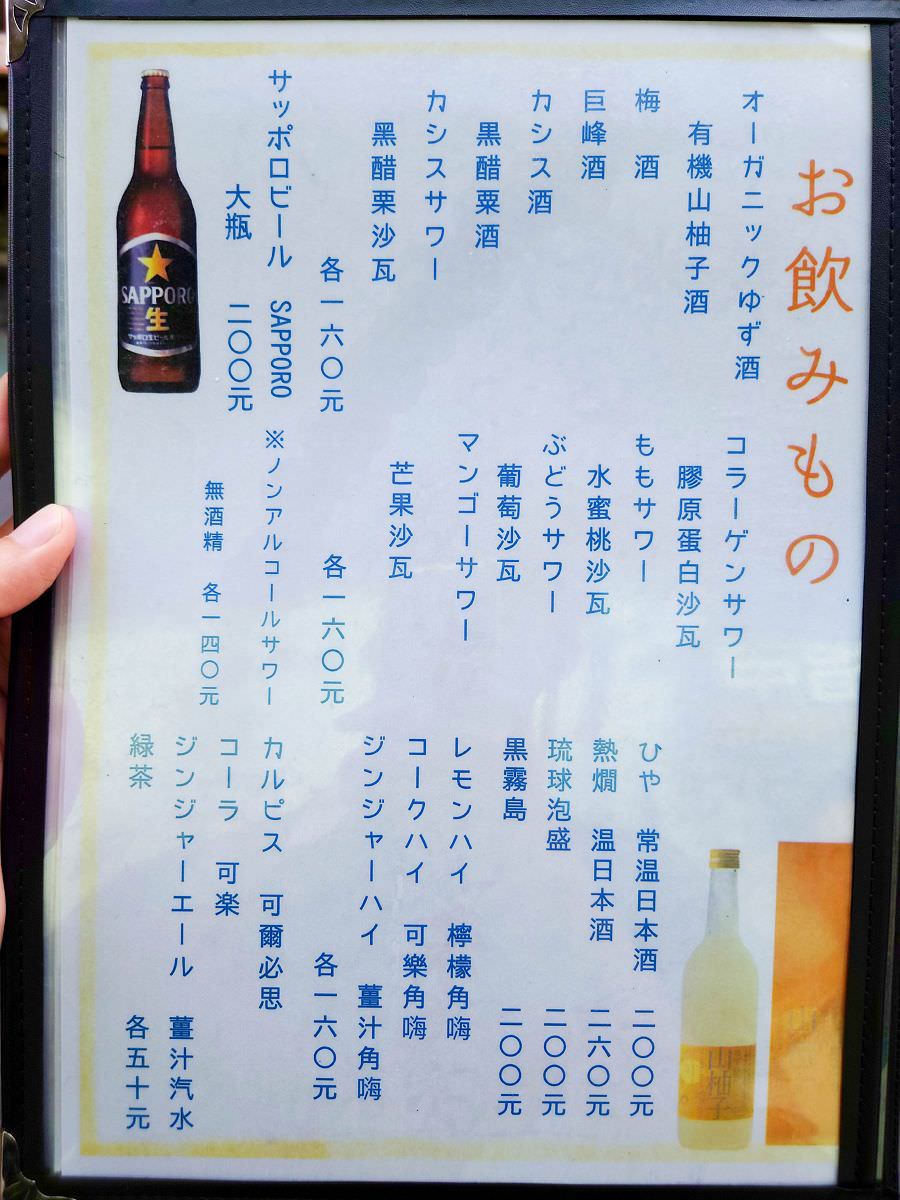 お飲みもの
オーガニックゆず酒
有機山柚子酒
梅 酒
巨峰酒
カシス酒
黒醋粟酒
カシスサワー
黑醋栗沙瓦
各一六〇元
サッポロビール SAPPORO
大瓶 二〇〇元
コラーゲンサワー
膠原蛋白沙瓦
ももサワー
水蜜桃沙瓦
ぶどうサワー
葡萄沙瓦
マンゴーサワー
芒果沙瓦
各一六〇元
※ノンアルコールサワー
無酒精 各一四〇元
ひや 常温日本酒 二〇〇元
熱燗 温日本酒 二六〇元
琉球泡盛 二〇〇元
黒霧島 二〇〇元
レモンハイ 檸檬角嗨
コークハイ 可樂角嗨
ジンジャーハイ 薑汁角嗨
各一六〇元
カルピス 可爾必思
コーラ 可楽
ジンジャーエール 薑汁汽水
緑茶 各五十元
SAPPORO
生
山柚子